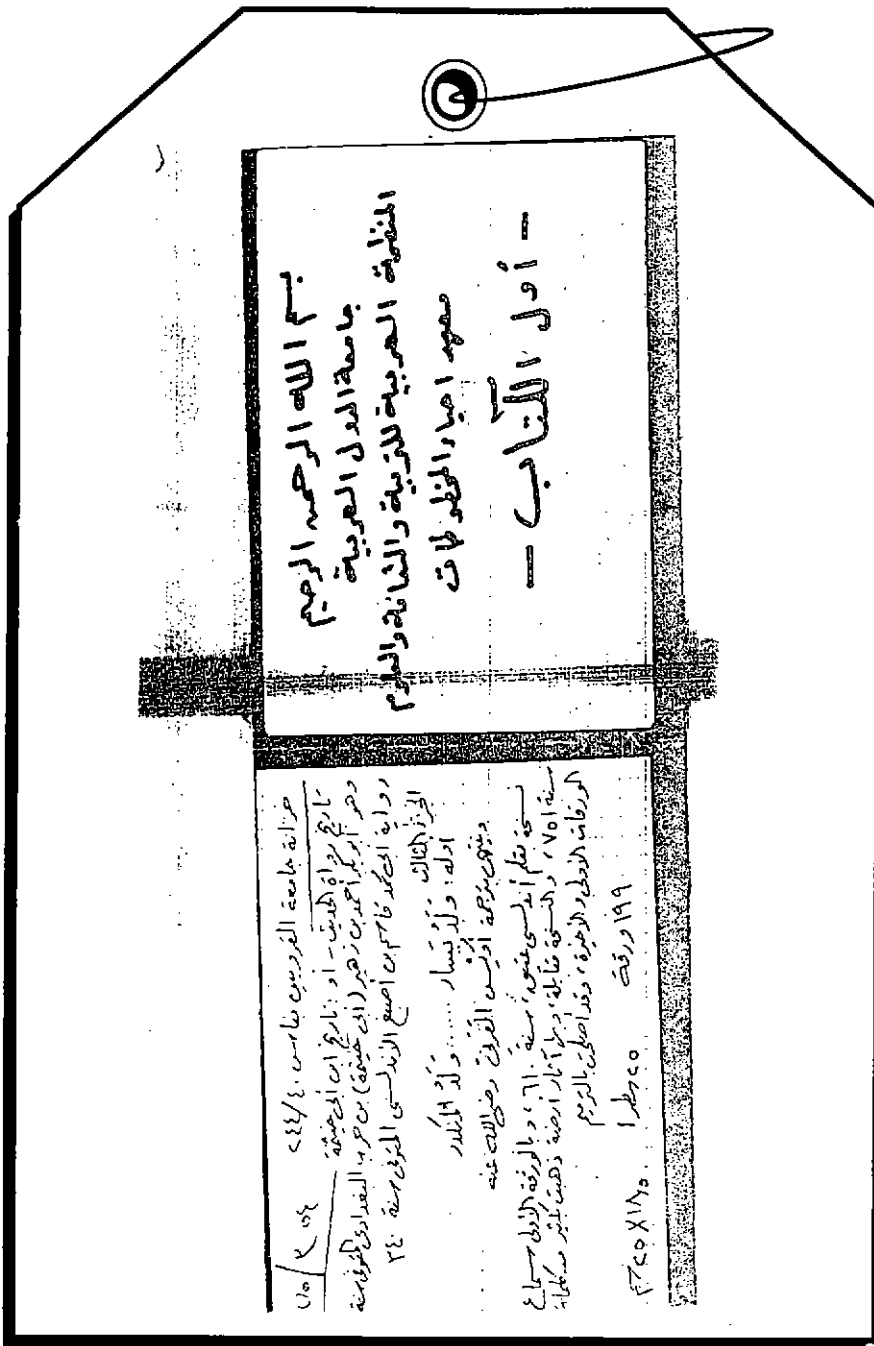 بسم الله الرحمن الرحيم
جامعة الدول العربية
المنظمة العربية للتربية والثقافة والعلوم
معهد احياء المخطوطات
- أول الكتاب -
خزانة جامعة القرويين بفاس ٢٤٤/٤٠
تاريخ رواة الحديث - أو: تاريخ ابن أبي خيثمة
وهو أبو بكر أحمد بن زهير (أبي خيثمة) بن حرب البغدادي المتوفى سنة
رواية أبي محمد قاسم بن أصبغ الأندلسي المتوفى سنة ٣٤٠
الجزء الثالث
أوله: ولد يسار ..... ولد المنكدر
وينتهي بترجمة أويس القرني رضي الله عنه
نسخة بقلم أندلسي عتيق، سنة ٦١٠، وبالورقة الأولى سماع
سنة ٧٥١، والنسخة مقابلة، وبها آثار أرضة ذهبت بكثير من كلمات
الورقات الأولى والأخيرة، وقد أصلحت بالترميم
١٩٩ ورقة ٢٥ سطرا ١٨٫٥×٢٥سم